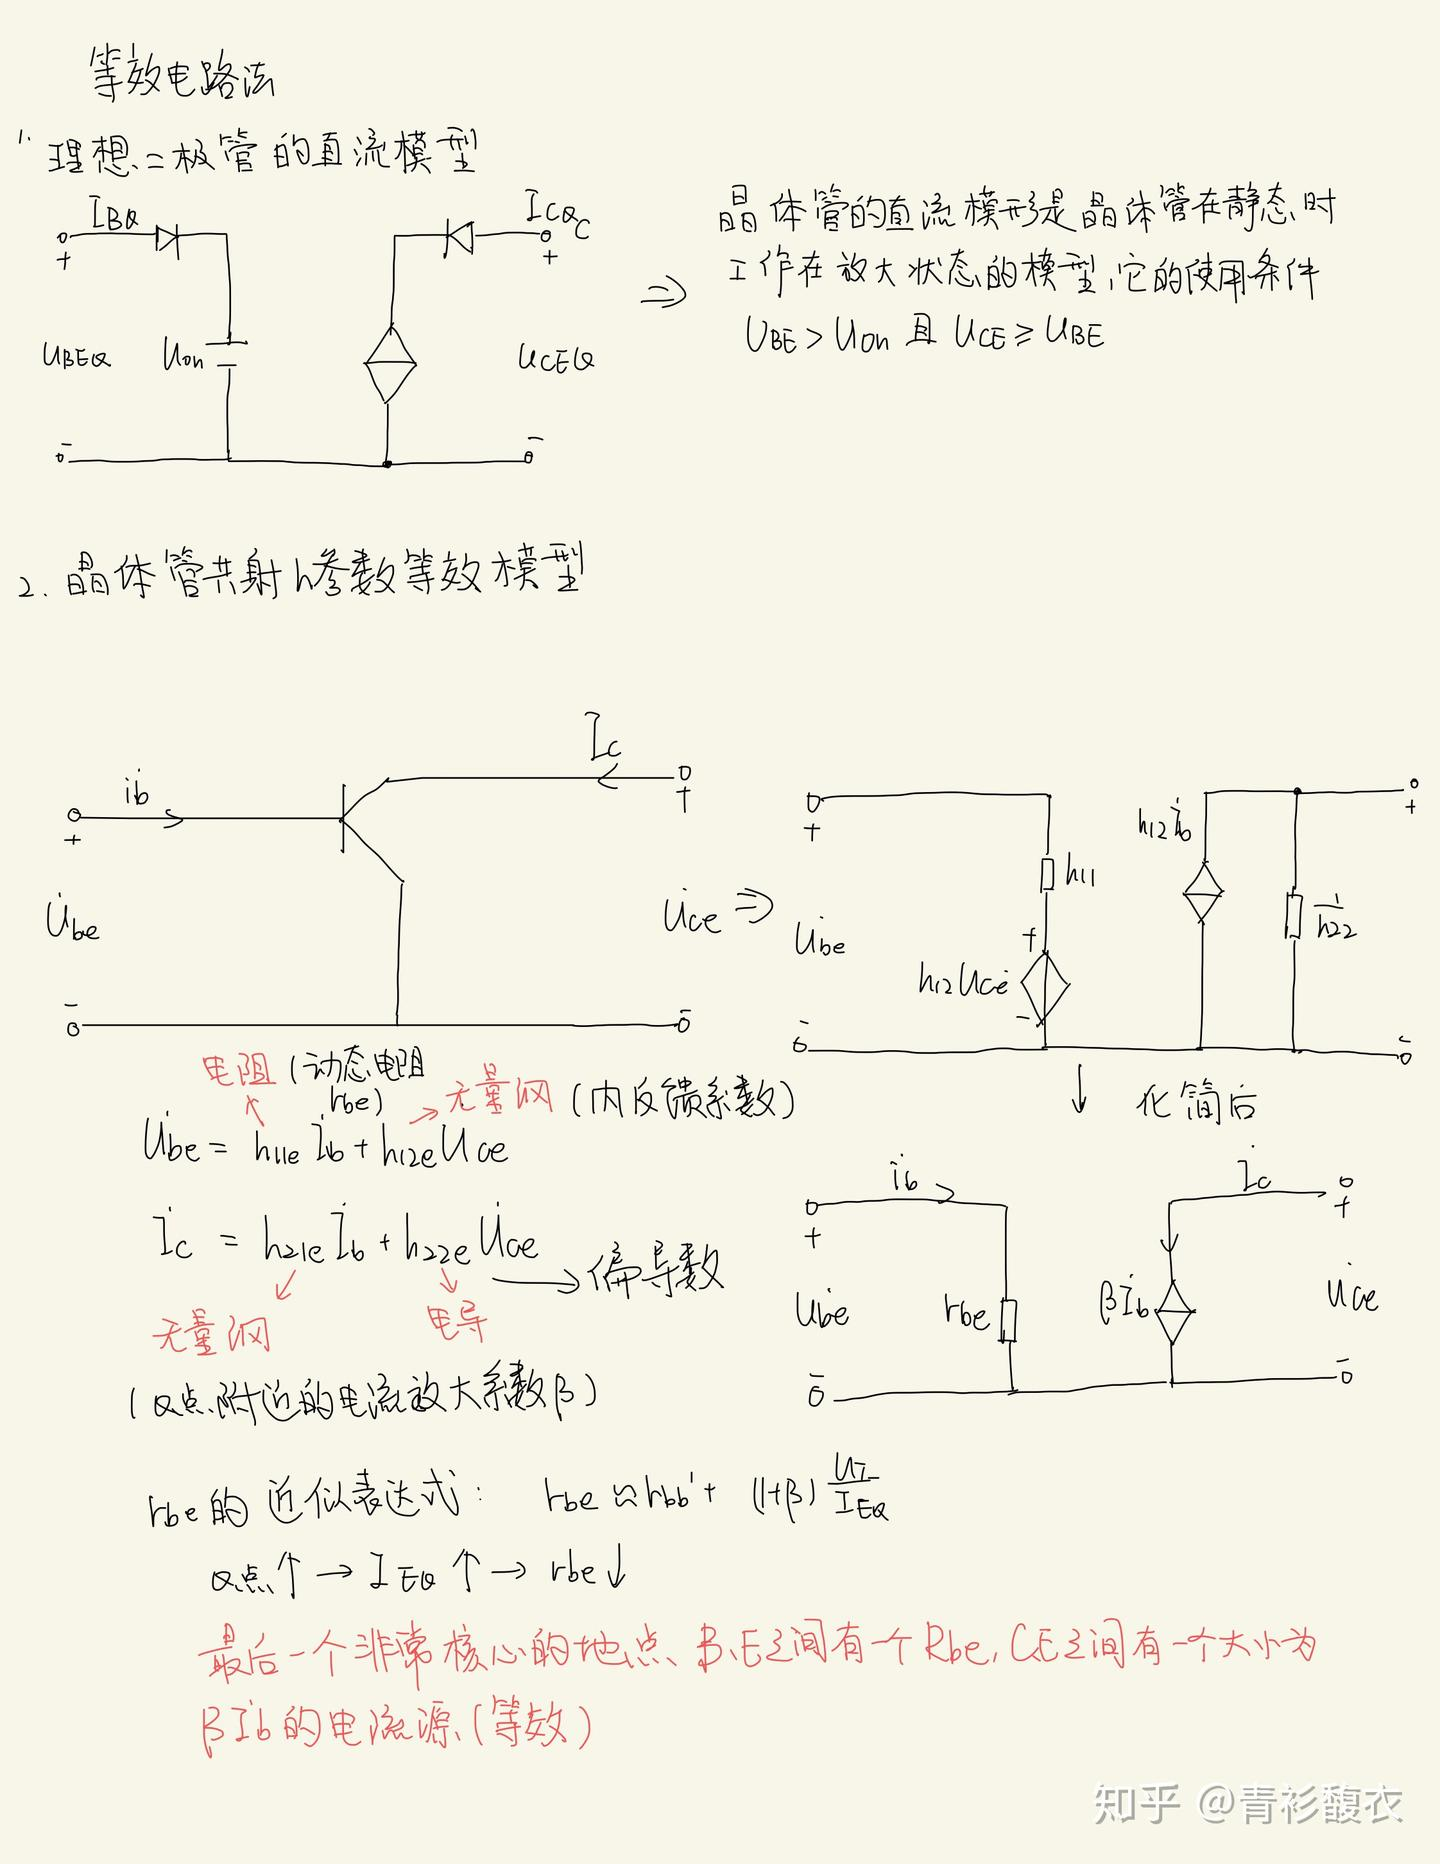 等效电路法
1. 理想二极管的直流模型
IBQ
ICQ
C
+
+
UBEQ
Uon
UCEQ
-
-
⇒
晶体管的直流模形是晶体管在静态时
工作在放大状态的模型,它的使用条件
UBE > Uon 且 UCE ≥ UBE
2. 晶体管共射h参数等效模型
ib
Ic
+
+
U̇be
U̇ce
-
-
⇒
+
+
h11
h12 İb
1/h22
U̇be
+
h12 U̇ce
-
-
-
↓ 化简后
电阻 (动态电阻 rbe)
无量纲 (内反馈系数)
U̇be = h11e İb + h12e U̇ce
İc = h21e İb + h22e U̇ce → 偏导数
无量纲
电导
(Q点附近的电流放大系数β)
İb
İc
+
+
U̇be
rbe
β İb
U̇ce
-
-
rbe的近似表达式: rbe ≈ rbb' + (1+β) UT/IEQ
Q点↑ → IEQ ↑ → rbe ↓
最后一个非常核心的地点、B、E之间有一个Rbe, C.E之间有一个大小为
βİb的电流源、(等效)
知乎 @青衫馥衣